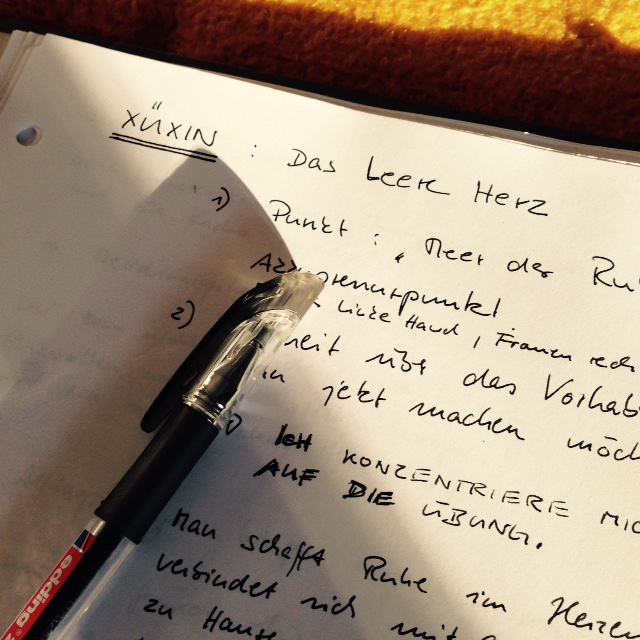 XÜXIN : Das Leere Herz
1) Punkt : „Meer der Ru
2)
Linke Hand, Frauen rech
heit über das Vorhab
in jetzt machen möch
ICH KONZENTRIERE MIC
AUF DIE ÜBUNG.
Man schafft Ruhe im Herzen
verbindet sich mit
zu Hause
edding